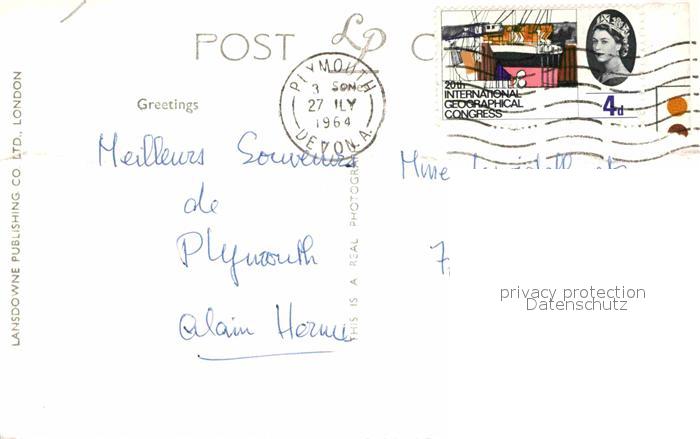 POST
Lp
C
PLYMOUTH
3 30 PM
27 JLY
1964
DEVON. A.
20th
INTERNATIONAL
GEOGRAPHICAL
CONGRESS
4d
Greetings
Meilleurs Souvenirs
de
Plymouth
Alain
Mme
7
LANSDOWNE PUBLISHING CO. LTD., LONDON
THIS IS A REAL PHOTOGRAPH
privacy protection
Datenschutz